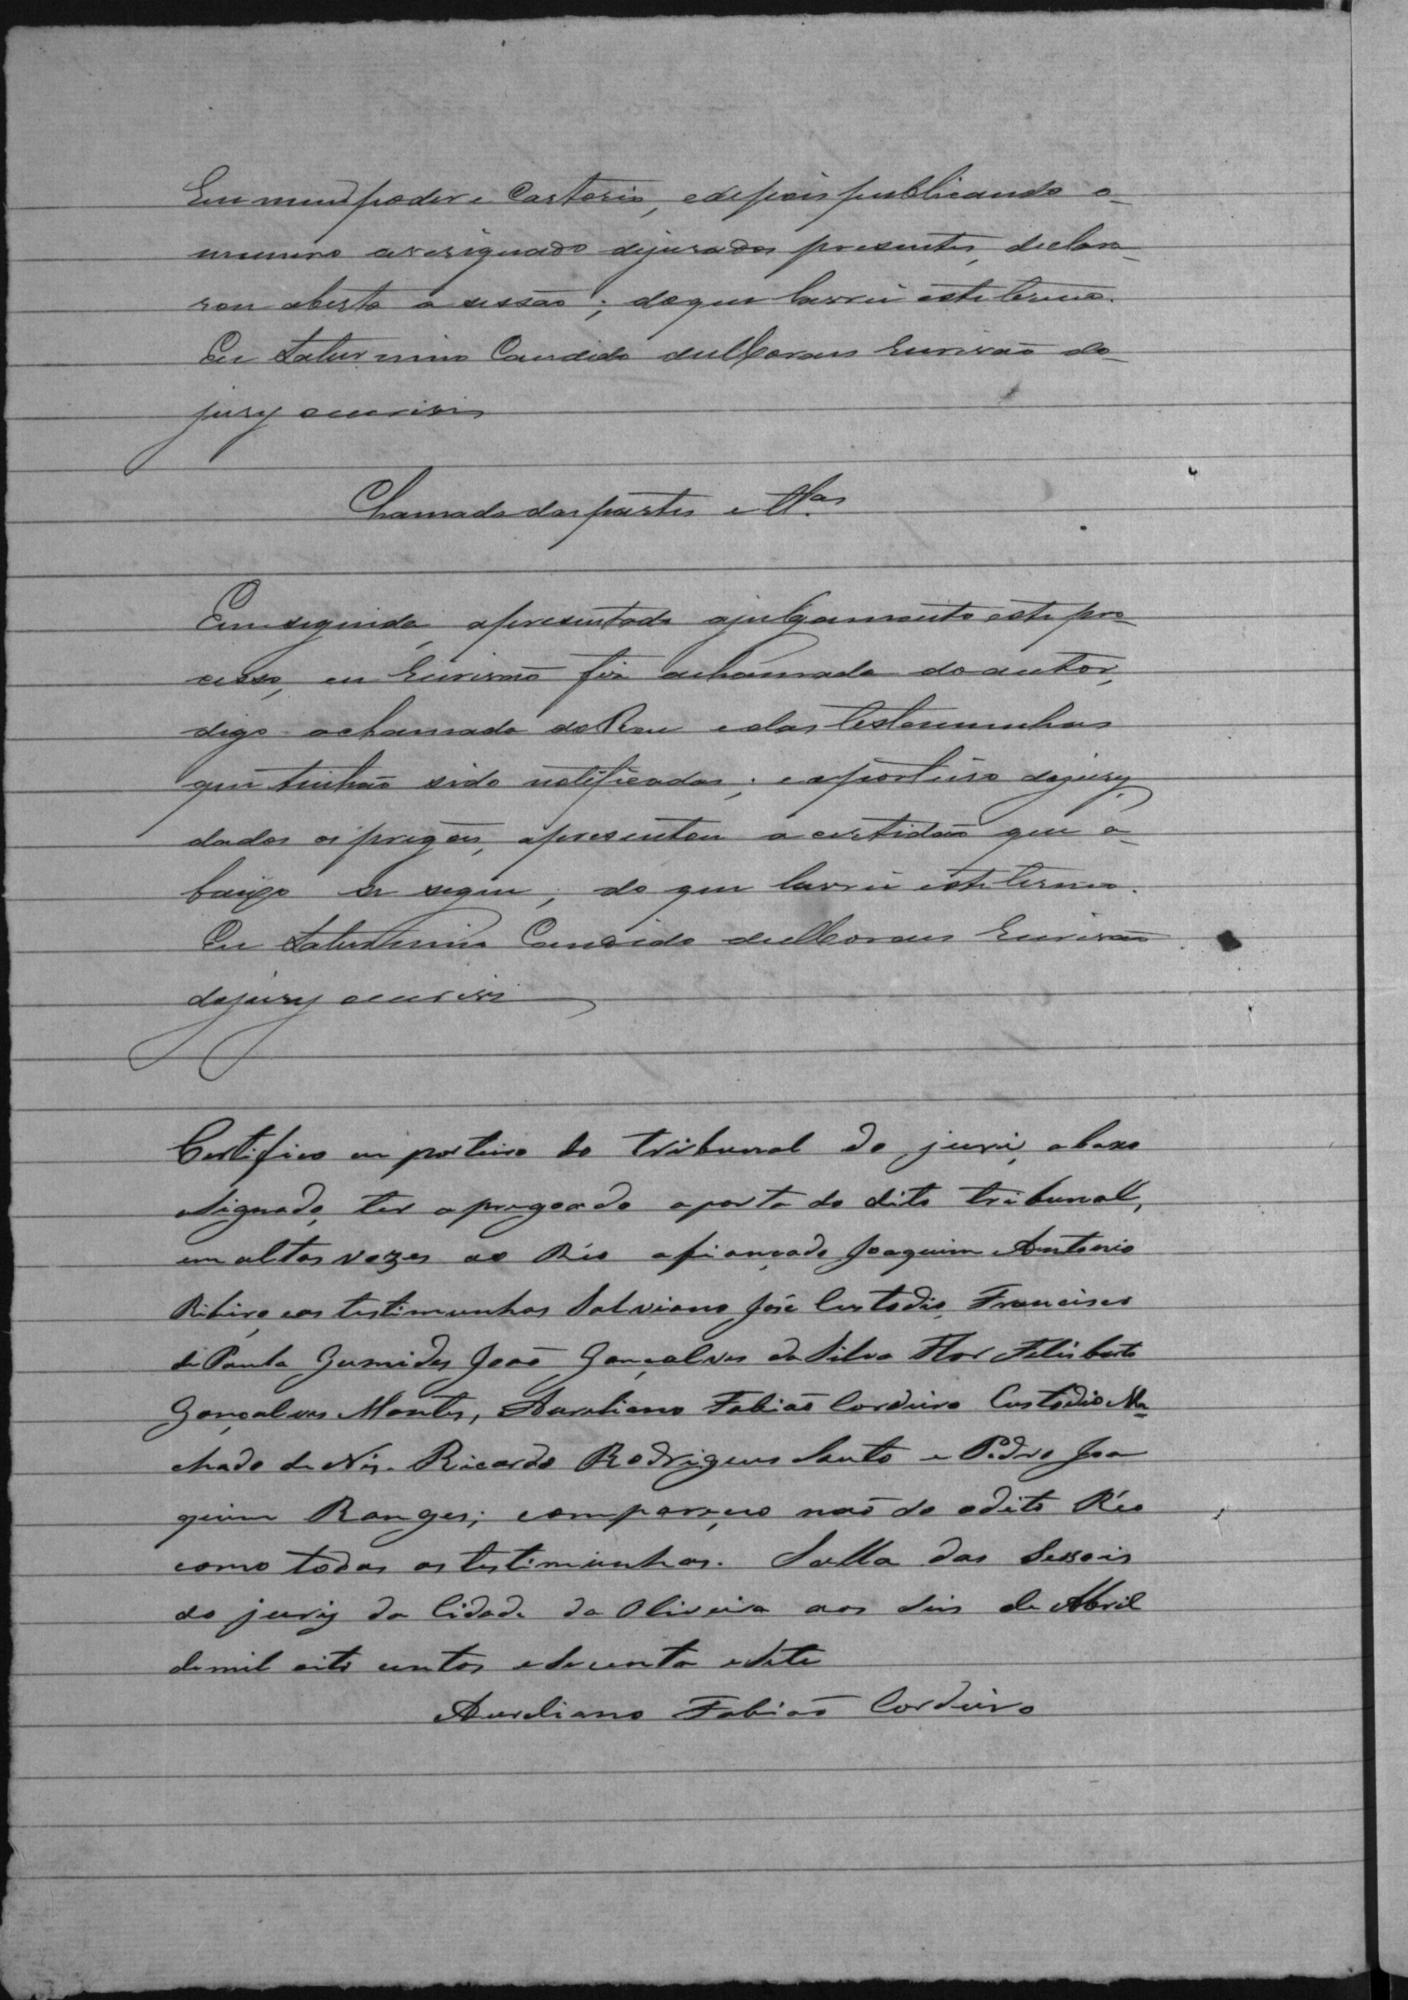 Em meu poder e Cartorio, e depois publicando o
numero aresignado de jurados presentes, decla-
rou aberta a sessão; do que lavrei este termo.
Eu Saturnino Candido de Moraes Escrivão do
jury o escrivi
Chamada das partes e tt.as
Em seguida, apresentado a julgamento este pro-
cesso, eu Escrivão fiz a chamada do autor,
digo a chamada do Reu e das testemunhas
que tinhão sido notificadas; e o porteiro do jury,
dados os pregões, apresentou a certidão que a-
baixo se segue; do que lavrei este termo.
Eu Saturnino Candido de Moraes Escrivão
do jury o escrivi
Certifico eu porteiro do tribunal do juri, abaxo
signado, ter apregoado a porta do dito tribunal,
em altas vozes ao Réo afiançado Joaquim Antonio
Ribiro, e as testimunhas Salviano José Custodio, Francisco
de Paula João Gonçalves da Silva Flor Felisberto
Gonçalves Montes, Aureliano Fabião Cordeiro Custodio Ma-
chado de Ricardo Rodrigues Souto e Pedro Joa
quim Ranges; compareceo não só o dito Réo
como todas as testimunhas. Salla das Sessois
do jury da Cidade da Oliveira aos seis de Abril
de mil oito centos e oitenta e sete
Aureliano Fabião Cordeiro